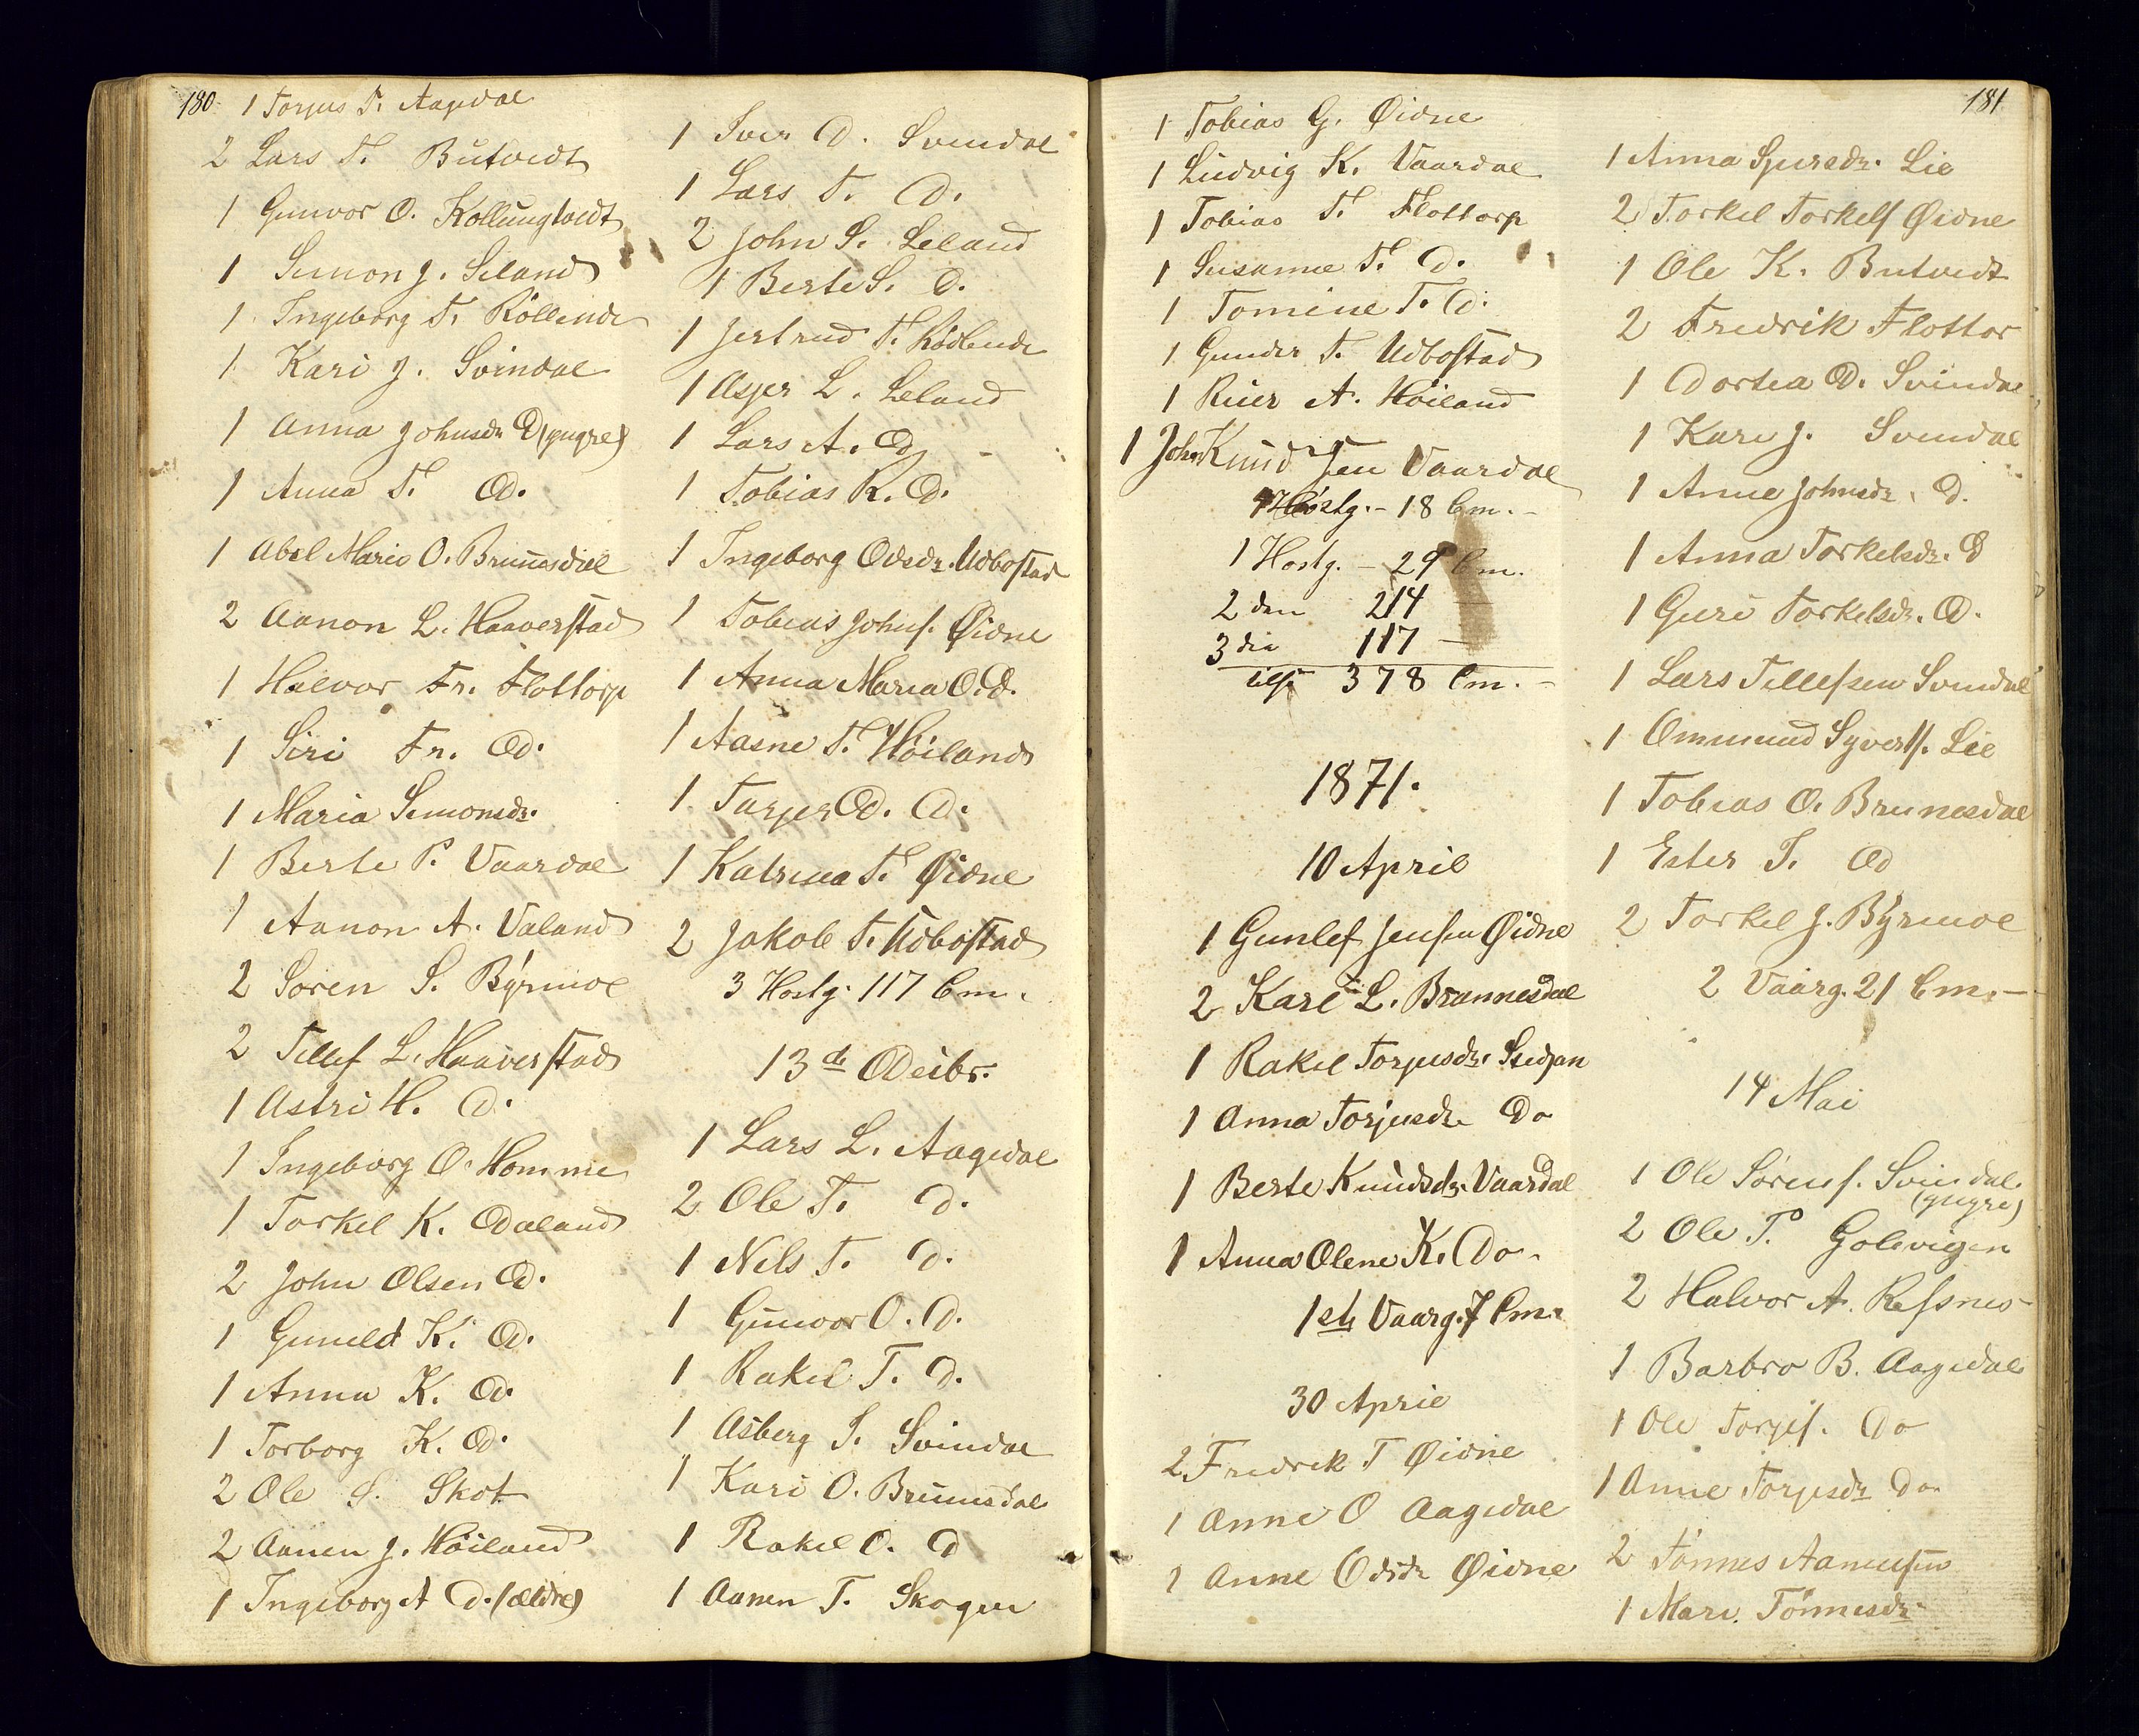 180
1 Torjus T. Aagedal
2 Lars T. Butvedt
1 Gunvor O. Kollungtvedt
1 Simon J. Seland
1 Ingeborg T. Röllend
1 Kari J. Svindal
1 Anna Johnsdr D (yngre)
1 Anna T. D.
1 Abel Marie O. Brunnesdal
2 Aanon L. Haaverstad
1 Halvor Fr. Flottorp
1 Siri Fr. D.
1 Maria Simonsdr.
1 Berte P. Vaardal
1 Aanon A. Valand
2 Soren S. Býrmoe
2 Tellef L. Haaverstad
1 Astri H. D.
1 Ingeborg O. Homme
1 Torkel K. Odaland
2 John Olsen D.
1 Guneld K. D.
1 Anna K. D.
1 Torborg K. D.
2 Ole S. Skot
2 Aanen J. Höiland
1 Ingeborg A D. (ældre)
1 Sven D. Svindal
1 Lars T. D.
2 John S. Leland
1 Berte S. D.
1 Jertrud T. Rödlende
1 Asjer L. Leland
1 Lars A. D.
1 Tobias R. D.
1 Ingeborg Odsdr. Udbostad
1 Tobias Johns. Øidne
1 Anna Maria O. D.
1 Aasne T. Höiland
1 Tarjer D. D.
1 Katrina T. Øidne
2 Jakob T. Udbostad
3 Hostg. 117 Cm.
13de Debr.
1 Lars L. Aagedal
2 Ole T. D.
1 Nils T. D.
1 Gunvor O. D.
1 Rakel T. D.
1 Asberg S. Svindal
1 Kari O. Brunnsdal
1 Rakel O. D
1 Aanen T. Skogen
181
1 Tobias G. Øidne
1 Ludvig K. Vaardal
1 Tobias T. Flottorp
1 Susanne T. D.
1 Tomine T. D.
1 Gunder T. Udbostad
1 Reier A. Höiland
1 John Knudsen Vaardal
Höstg. - 18 Cm. -
1 Hostg. - 29 Cm.
2 den 214 -
3 die 117 -
378 Cm. -
1871.
10 April
1 Gunlef Jensen Øidne
2 Karl L. Brunnesdal
1 Rakel Torjusdr. Stedjan
1 Anna Torjusdr Do
1 Berte Knudsdr. Vaardal
1 Anna Olene K. Do -
1ste Vaarg. 7 Cm.
30 April
2 Fredrik T Øidne
1 Anne O Aagedal
1 Anne Odsdr Øidne
1 Anna Sjursdr. Lie
2 Torkel Torkels Øidne
1 Ole K. Butvedt
2 Fredrik Flottor
1 Dortea D. Svindal
1 Kari J. Svindal
1 Anne Johnsdr. D.
1 Anna Torkelsdr. D
1 Guri Torkelsdr. D.
1 Lars Tellefsen Svindal
1 Ommund Syverts. Lie
1 Tobias O. Brunnesdal
1 Ester T. D
2 Torkel J. Býrmoe
2 Vaarg. 21 Cm. -
14 Mai
1 Ole Sörens. Svindal
(yngre)
2 Ole T. Golevigen
2 Halvor A. Refsnes
1 Barbro B. Aagedal
1 Ole Torjus. Do
1 Anne Torjusdr Do
2 Tönnes Aanensen
1 Mari Tönnesdr